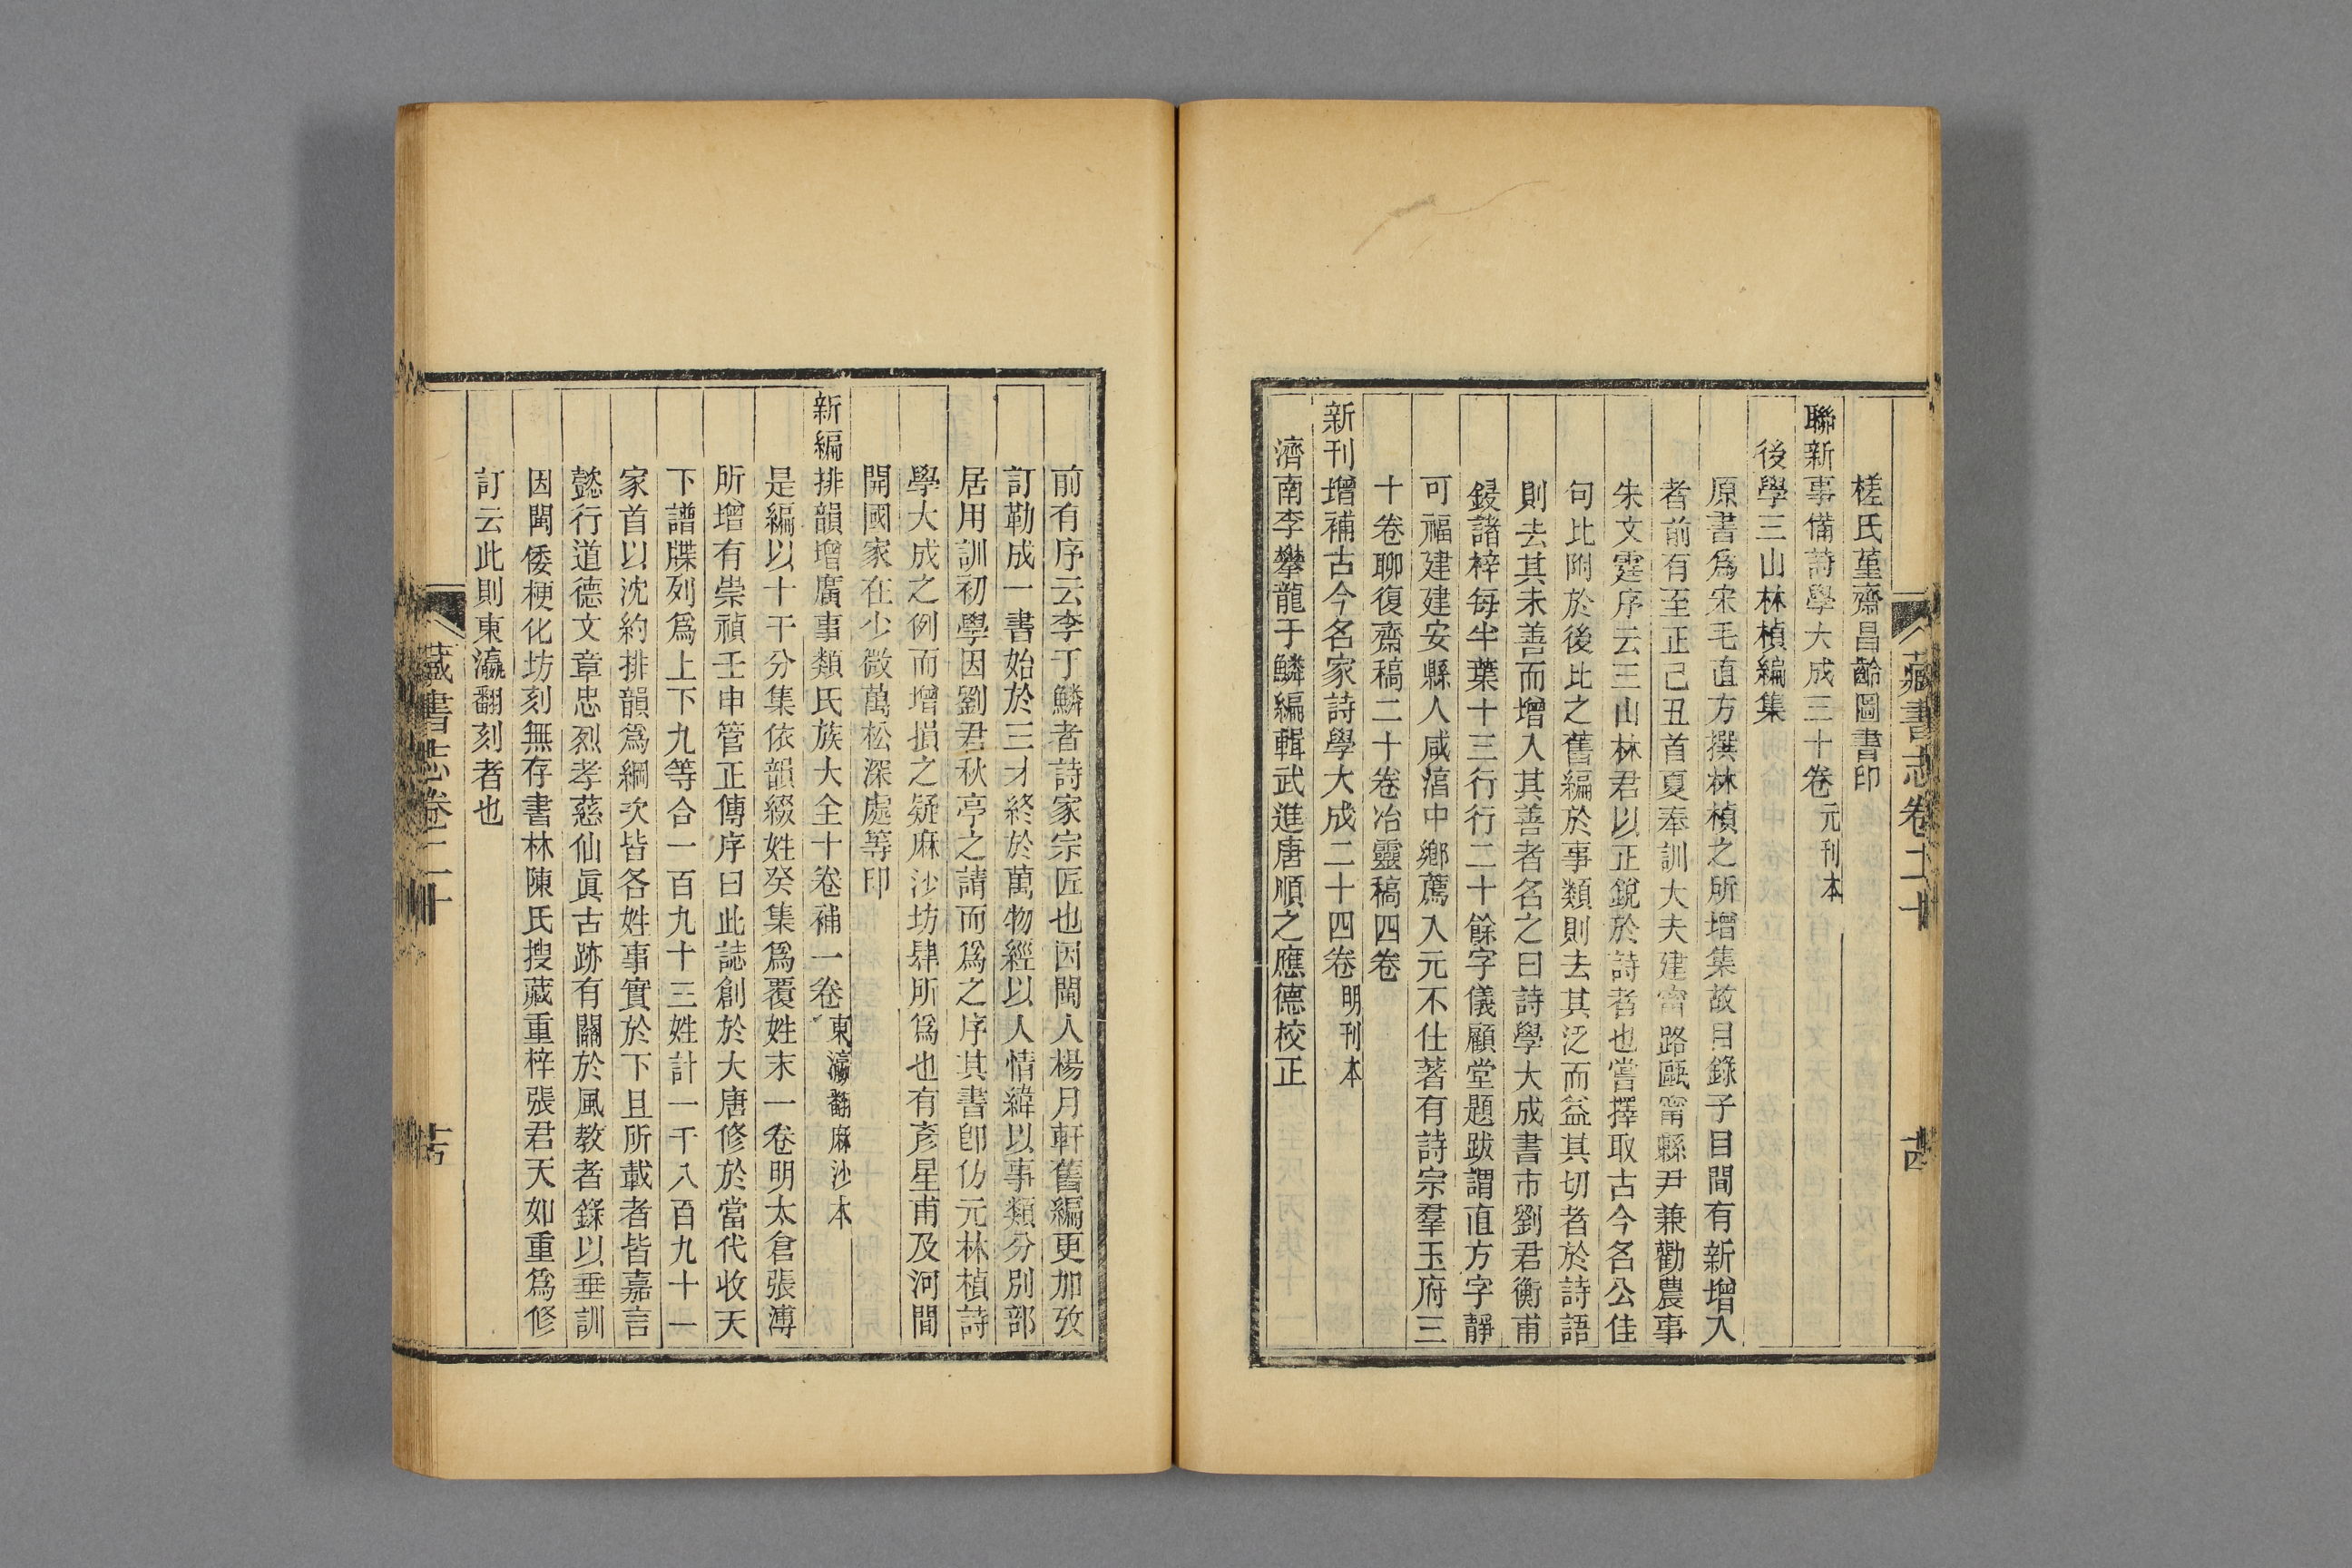 藏書志卷二十
槎氏堇齋昌齡圖書印
聯新事備詩學大成三十卷元刊本
後學三山林楨編集
原書爲宋毛直方撰林楨之所增集故目錄子目間有新增入
者前有至正己丑首夏奉訓大夫建甯路甌甯縣尹兼勸農事
朱文霆序云三山林君以正銳於詩者也嘗擇取古今名公佳
句比附於後比之舊編於事類則去其泛而益其切者於詩語
則去其未善而增入其善者名之曰詩學大成書市劉君衡甫
鋟諸梓每半葉十三行行二十餘字儀顧堂題跋謂直方字靜
可福建建安縣人咸淳中鄉薦入元不仕著有詩宗羣玉府三
十卷聊復齋稿二十卷冶靈稿四卷
新刊增補古今名家詩學大成二十四卷明刊本
濟南李攀龍于鱗編輯武進唐順之應德校正
前有序云李于鱗者詩家宗匠也因閩人楊月軒舊編更加攷
訂勒成一書始於三才終於萬物經以人情緯以事類分別部
居用訓初學因劉君秋亭之請而爲之序其書卽仿元林楨詩
學大成之例而增損之疑麻沙坊肆所爲也有彥星甫及河間
開國家在少微萬松深處等印
新編排韻增廣事類氏族大全十卷補一卷東瀛翻麻沙本
是編以十干分集依韻綴姓癸集爲覆姓末一卷明太倉張溥
所增有崇禎壬申管正傳序曰此誌創於大唐修於當代收天
下譜牒列爲上下九等合一百九十三姓計一千八百九十一
家首以沈約排韻爲綱次皆各姓事實於下且所載者皆嘉言
懿行道德文章忠烈孝慈仙眞古跡有關於風教者錄以垂訓
因閩倭梗化坊刻無存書林陳氏搜藏重梓張君天如重爲修
訂云此則東瀛翻刻者也
藏書志卷二十